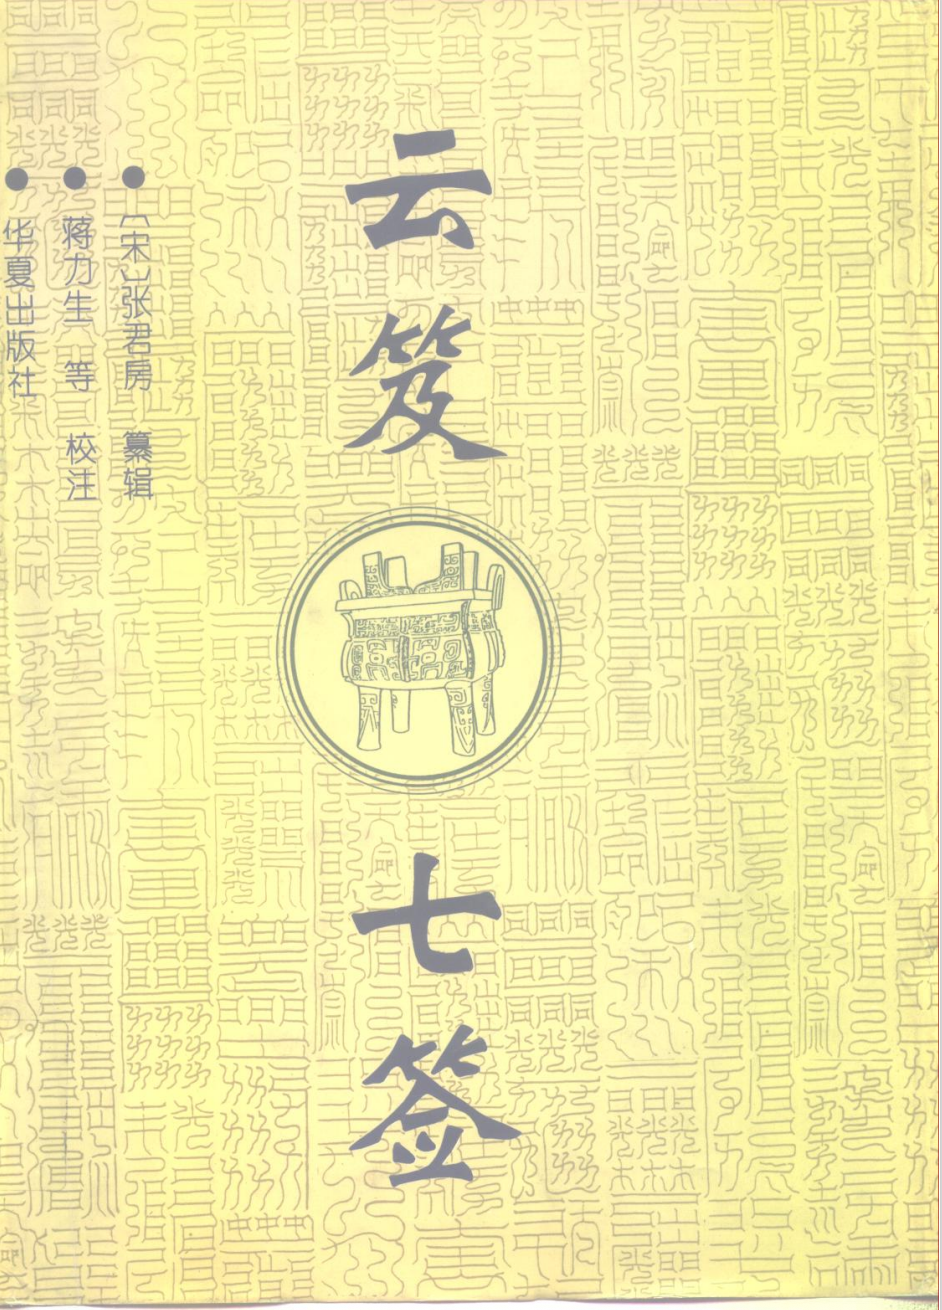 云笈七签
〔宋〕张君房 纂辑
蒋力生 等 校注
华夏出版社